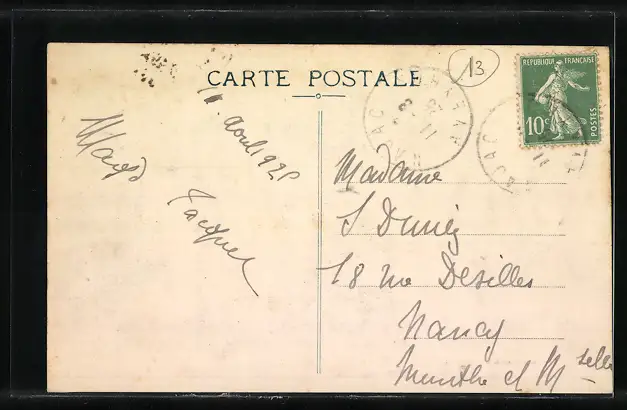 CARTE POSTALE
13
RÉPUBLIQUE FRANÇAISE
10c
POSTES
11 Aout 1925
Jacques
Madame
18 rue Désilles
Nancy
Meurthe et Mselle